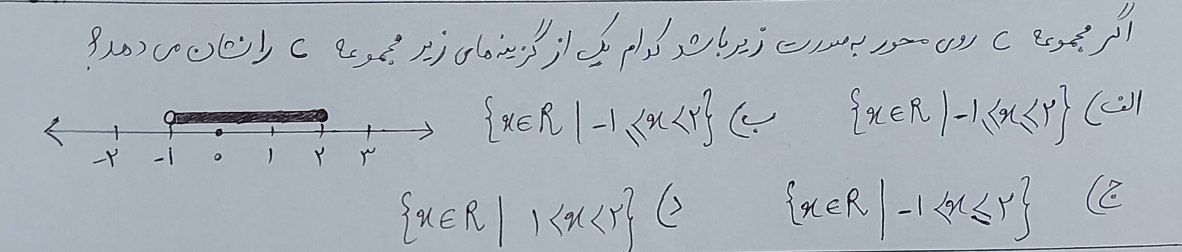 اگر مجموعه C روی محور به صورت زیر باشد کدام یک از گزینه های زیر مجموعه C را نشان می دهد؟
الف) {x∈R | -۱ ⩽ x ⩽ ۲} ب) {x∈R | -۱ ⩽ x < ۲}
-۲ -۱ ۰ ۱ ۲ ۳
ج) {x∈R | -۱ < x ≤ ۲} د) {x∈R | ۱ < x < ۲}